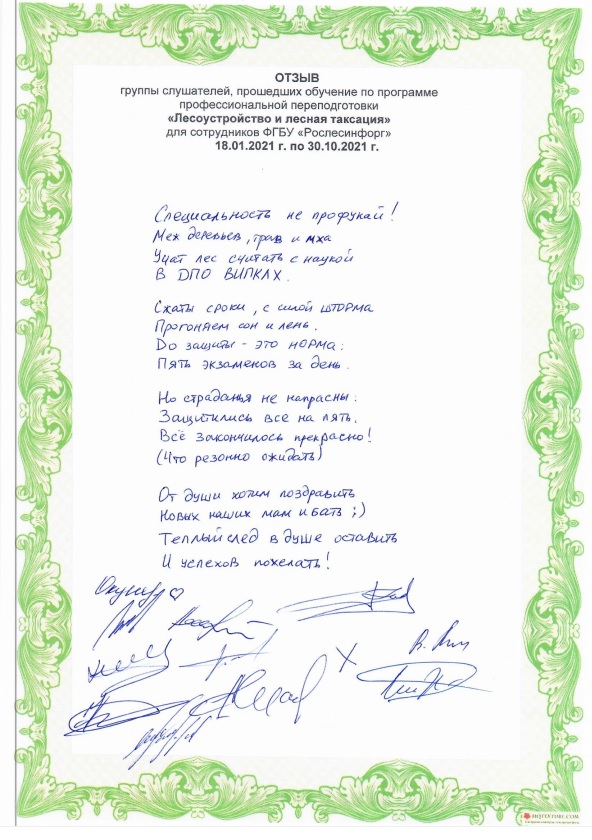 ОТЗЫВ
группы слушателей, прошедших обучение по программе
профессиональной переподготовки
«Лесоустройство и лесная таксация»
для сотрудников ФГБУ «Рослесинфорг»
18.01.2021 г. по 30.10.2021 г.
Специальность не профукай!
Меж деревьев, трав и мха
Учат лес считать с наукой
В ДПО ВИПКЛХ.
Сжаты сроки, с силой шторма
Прогоняем сон и лень.
До защиты - это норма:
Пять экзаменов за день.
Но страданья не напрасны:
Защитились все на пять.
Всё закончилось прекрасно!
(Что резонно ожидать)
От души хотим поздравить
Новых наших мам и бать ;)
Теплый след в душе оставить
И успехов пожелать!